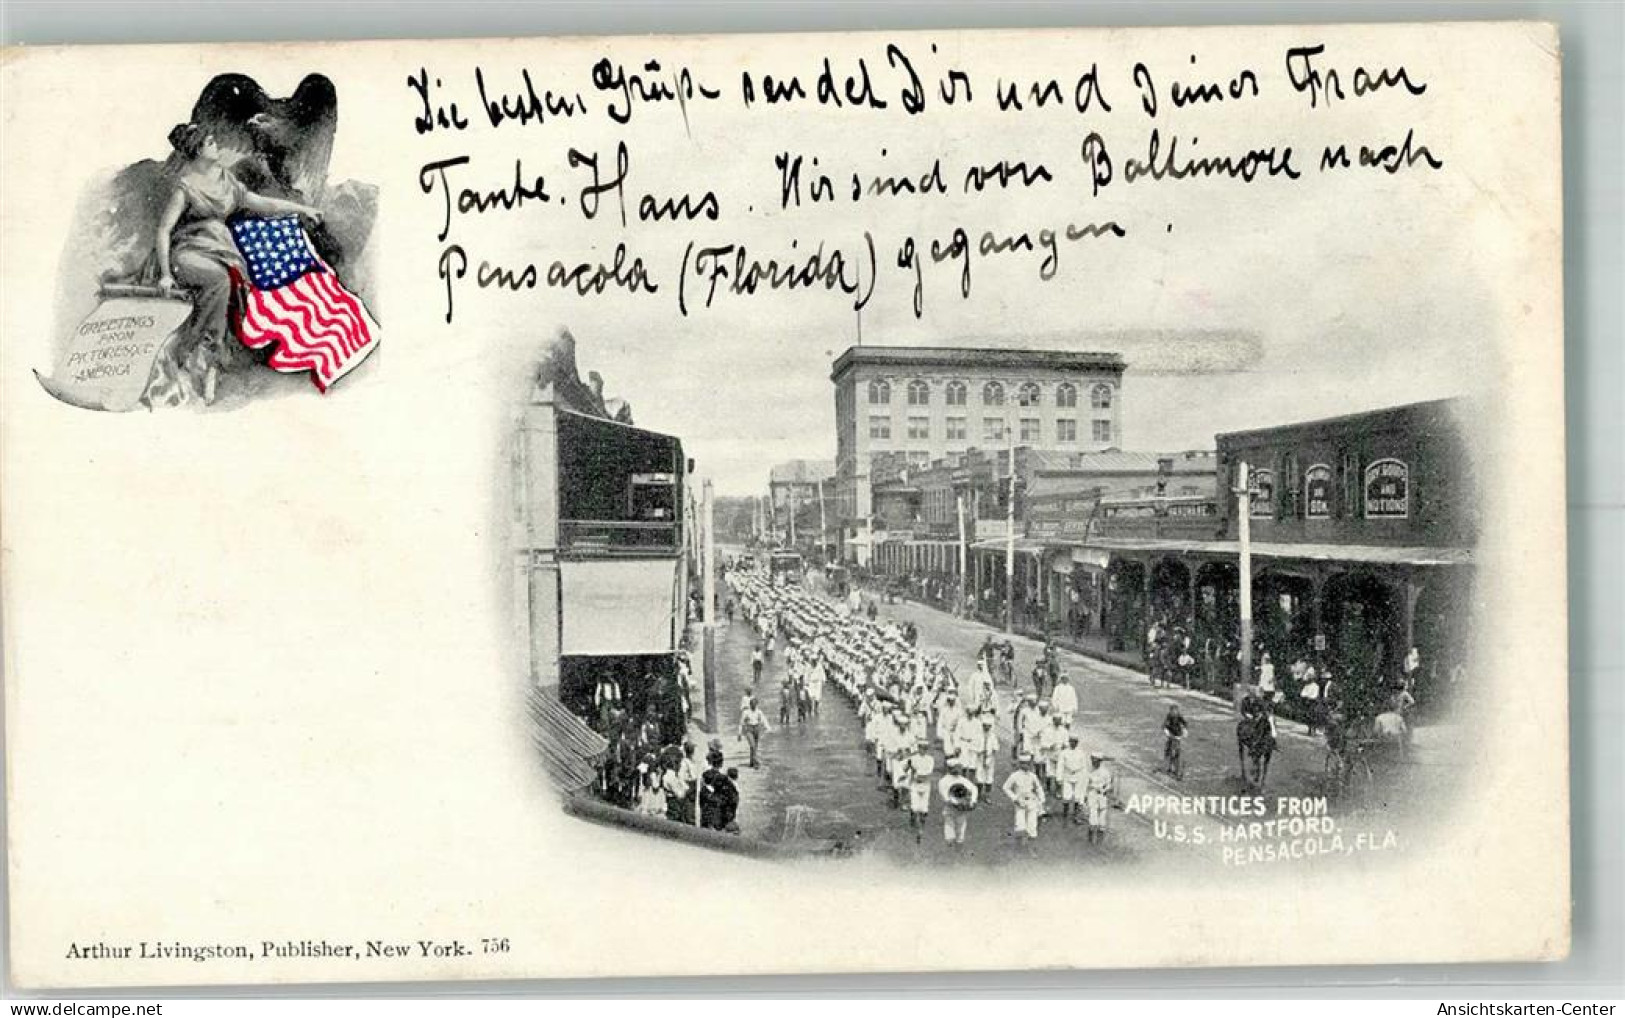 Die besten Grüße sendet Dir und Deiner Frau
Tante. Hans. Wir sind von Baltimore nach
Pensacola (Florida) gegangen.
GREETINGS
FROM
PICTURESQUE
AMERICA
AND
SON.
AND
NOTIONS
HARDWARE
APPRENTICES FROM
U.S.S. HARTFORD.
PENSACOLA, FLA
Arthur Livingston, Publisher, New York. 756
Ansichtskarten-Center